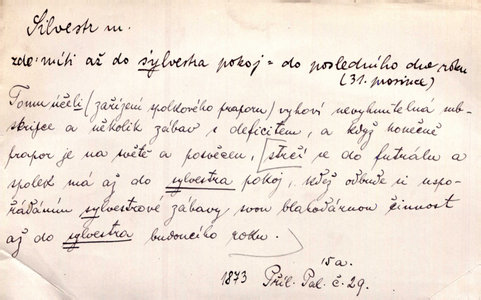 Silvestr m.
zde: míti až do sylvestra pokoj = do posledního dne roku
(31. prosince)
Tomu účeli (zařízení spolkového praporu) vyhoví nevyhnutelná sub-
skripce a několik zábav s deficitem, a když konečně
prapor je na světě a posvěcen, strčí se do futrálu a
spolek má až do sylvestra pokoj, kdež odbude si uspo-
řádáním sylvestrové zábavy, svou blahodárnou činnost
až do sylvestra budoucího roku.
15a.
1873 Příl. Pal. č. 29.